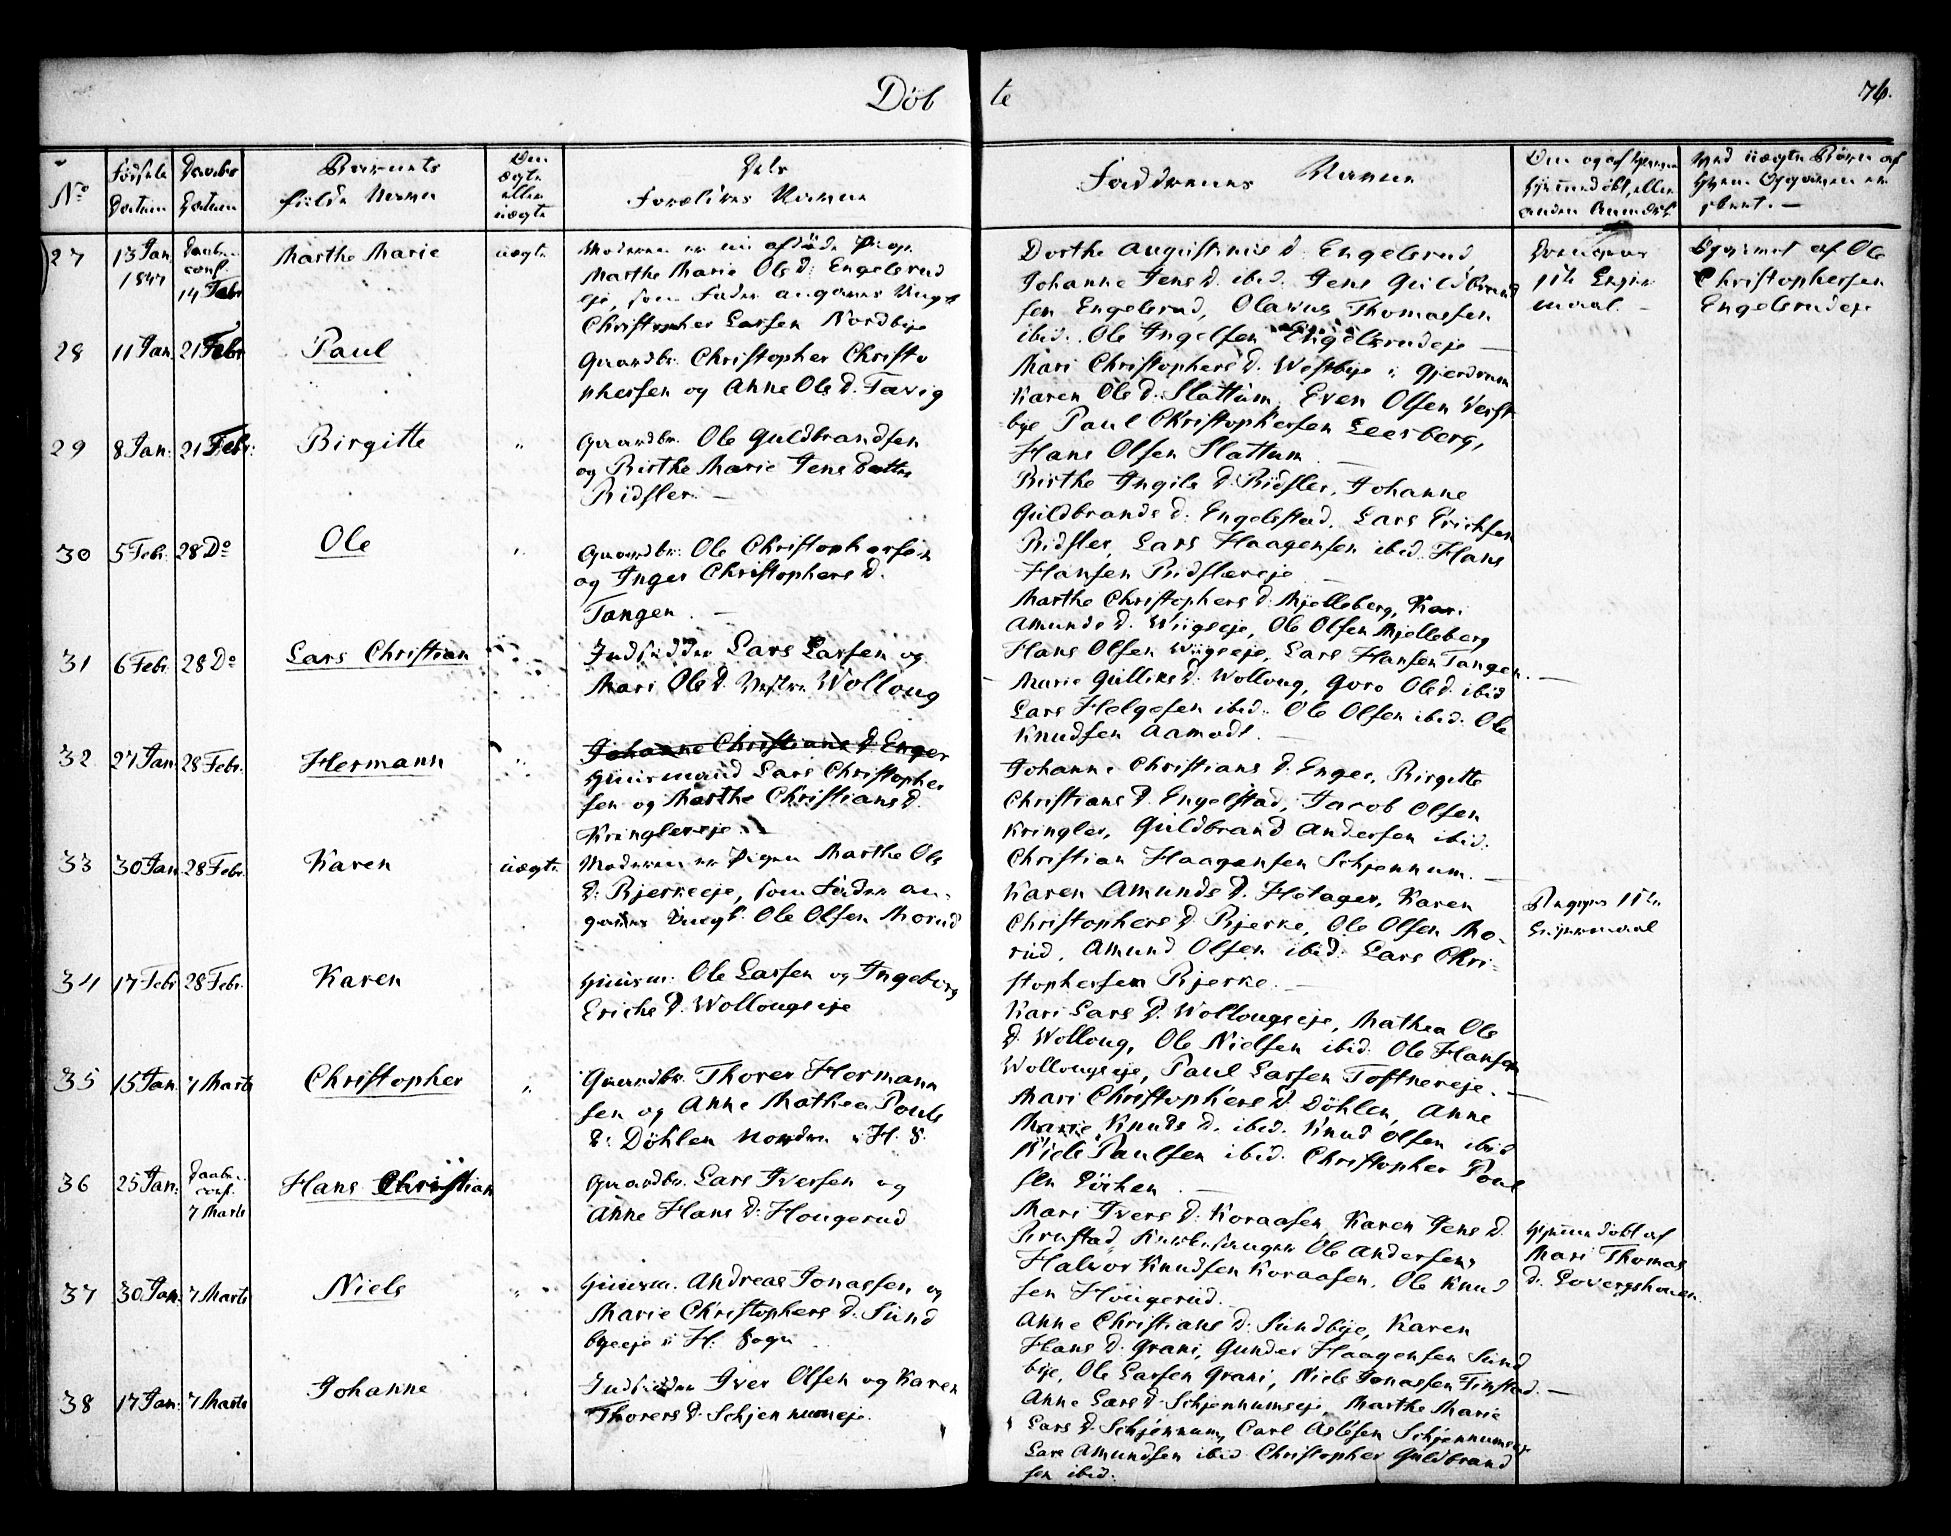 Döb te
76.
No
Fødsels Datum
Daabs Datum
Barnets fulde Navn
Om ægte eller uægte
Dets Forældres Navne
Faddrenes Navne
27
13 Jan. 1847
Daabs- conf. 14 Febr
Marthe Marie
uægte
Moderen er nu afdöde Pige
Marthe Marie Ols d. Engelsrud
eje, som Fader angaves Ungk
Christopher Larsen Nordbye
Dorthe Augustinus d. Engelsrud
Johanne Jens d. ibid. Jens Guldbrand
sen Engelsrud, Olavus Thomassen
ibid. Ole Ingelsen Engelsrudeje
Forægres
1ste Leier
maal.
Opgivet af Ole
Christophersen
Engelsrudeje
28
11 Jan.
21 Febr
Paul
Gaardbr. Christopher Christo
phersen og Anne Ols d. Tavig
Mari Christophers d. Westbye i Gjerdrum
Karen Ols d. Slattum, Even Olsen Vest
bye Paul Christophersen Leesberg,
Hans Olsen Slattum
29
8 Jan.
21 Febr.
Birgitte
"
Gaardbr. Ole Guldbrandsen
og Birthe Marie Jens datter
Bidsler.
Birthe Ingils d. Bidsler, Johanne
Guldbrands d. Engelstad. Lars Erichsen
Bidsler, Lars Haagensen ibid. Hans
Hansen Bidslereje
30
5 Febr.
28 Do
Ole
"
Gaardbr. Ole Christophersen
og Inger Christophers d.
Tangen.
Marthe Christophers d. Mjelleberg, Kari
Amunds d. Wiigseje, Ole Olsen Mjelleberg
Hans Olsen Wiigseje, Lars Hansen Tangen.
31
6 Febr.
28 Do
Lars Christian
Indsidder Lars Larsen og
Mari Ols d. Vestre Wolloug
Marie Gulliks d. Wolloug, Goro Ols d. ibid
Lars Helgesen ibid. Ole Olsen ibid. Ole
Knudsen Aamodt.
32
27 Jan.
28 Febr.
Hermann
"
Johanne Christians d. Enger
Huusmand Lars Christophe
sen og Marthe Christians d.
Kringlereje.
Johanne Christians d. Enger, Birgitte
Christians d. Engelstad, Jacob Olsen
Kringler, Guldbrand Andersen ibid.
Christian Haagensen Schjennum.
33
30 Jan
28 Febr.
Karen
uægte
Moderen er Pigen Marthe Ols
d. Bjerkeeje, som Fader an-
gaves Ungk. Ole Olsen Morud
Karen Amunds d. Helager, Karen
Christophers d. Bjerke, Ole Olsen Mo-
rud, Amund Olsen ibid. Lars Chri-
stophersen Bjerke.
Begges 1ste
Leiermaal
34
17 Febr
28 Febr.
Karen
Huusm. Ole Larsen og Ingeborg
Erichs d. Wollougseje
Kari Lars d. Wollougseje, Mathea Ols
d. Wolloug, Ole Nielsen ibid. Ole Hansen
Wollougseje, Paul Larsen Toftnereje.
35
15 Jan.
7 Marts
Christopher
"
Gaardbr. Thorer Hermann
sen og Anne Mathea Pouls
d. Döhlen Nordre i H. S.
Mari Christophers d. Döhlen, Anne
Marie Knuds d. ibid. Knud Olsen ibid
Niels Paulsen ibid. Christopher Poul
sen
36
25 Jan.
Daabs- conf. 7 Marts
Hans Christian
Gaardbr. Lars Iversen og
Anne Hans d. Hougerud
Mari Ivers d. Koraasen, Karen Jens d.
Brustad, Kirkesanger Ole Andersen,
Halvor Knudsen Koraasen, Ole Knud
sen Hougerud.
Hjemmedöbt af
Mari Thomas
d. Lovergshouen.
37
30 Jan.
7 Marts
Niels
"
Huusm. Andreas Jonassen og
Marie Christophers d. Sund
byeeje i H. Sogn
Anne Christians d. Sundbye, Karen
Hans d. Grani, Gunder Haagensen Sund
bye, Ole Larsen Grani, Niels Jonassen Tinstad.
38
17 Jan.
7 Marts
Johanne
Indsidder Iver Olsen og Karen
Thorers d. Schjennumeje.
Anne Lars d. Schjennumseje, Marthe Marie
Lars d. Schjennum, Carl Aslesen Schjennumseje
Lars Amundsen ibid Christopher Guldbrand
sen ibid.